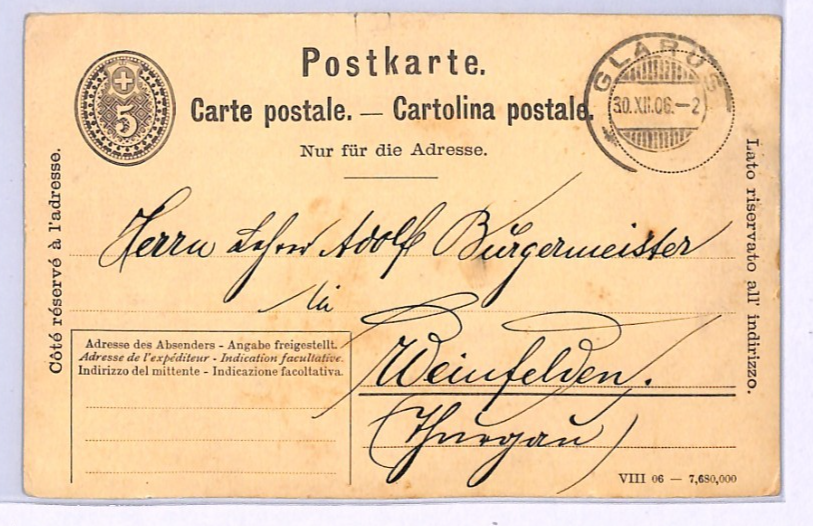 Postkarte.
Carte postale. — Cartolina postale.
Nur für die Adresse.
5
GLARUS
30.XII.06.—2
Côté réservé à l'adresse.
Lato riservato all' indirizzo.
Herrn Lehrer Adolf Bürgermeister
in
Weinfelden.
(Thurgau)
Adresse des Absenders - Angabe freigestellt.
Adresse de l'expéditeur - Indication facultative.
Indirizzo del mittente - Indicazione facoltativa.
VIII 06 — 7,680,000